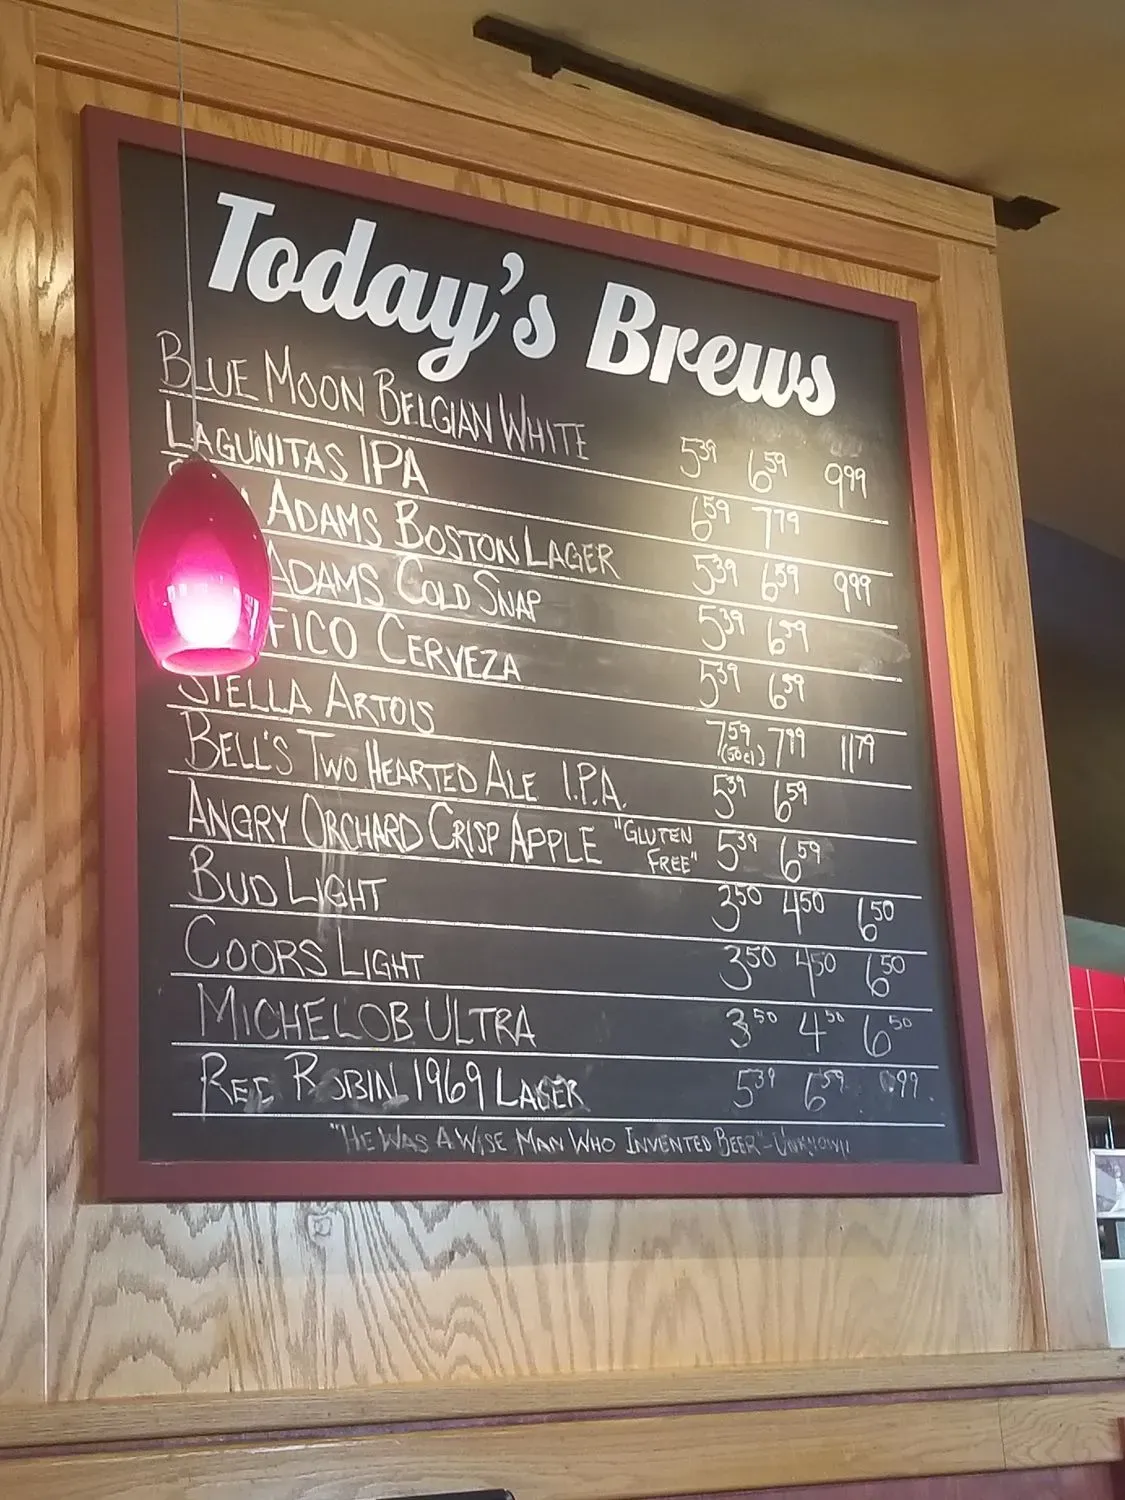 Today's Brews
BLUE MOON BELGIAN WHITE 5³⁹ 6⁵⁹ 9⁹⁹
LAGUNITAS IPA 6⁵⁹ 7⁷⁹
ADAMS BOSTON LAGER 5³⁹ 6⁵⁹ 9⁹⁹
ADAMS COLD SNAP 5³⁹ 6⁵⁹
FICO CERVEZA 5³⁹ 6⁵⁹
STELLA ARTOIS 7⁵⁹ (50cl) 7⁹⁹ 11⁷⁹
BELL'S TWO HEARTED ALE I.P.A. 5³⁹ 6⁵⁹
ANGRY ORCHARD CRISP APPLE "GLUTEN FREE" 5³⁹ 6⁵⁹
BUD LIGHT 3⁵⁰ 4⁵⁰ 6⁵⁰
COORS LIGHT 3⁵⁰ 4⁵⁰ 6⁵⁰
MICHELOB ULTRA 3⁵⁰ 4⁵⁰ 6⁵⁰
RED ROBIN 1969 LAGER 5³⁹ 6⁵⁹ 9⁹⁹
"HE WAS A WISE MAN WHO INVENTED BEER" - UNKNOWN